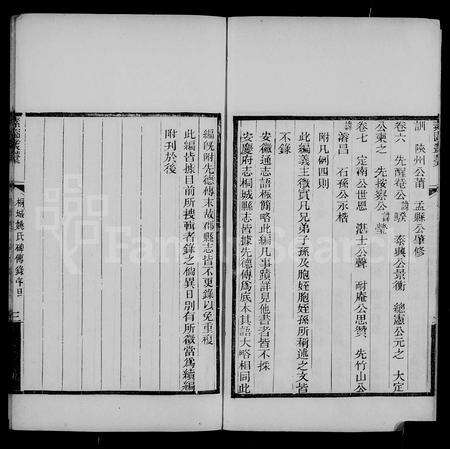 訓　陝州公莆　孟縣公肇修
卷六　先醒菴公諱　泰興公景衡　總憲公元之　大定
公柬之　先按察公諱瑩
卷七　定南公世恩　湛士公聲　耐庵公思贊　先竹山公
諱濬昌　石孫公永楷
附凡例四則
此編義主徵實凡兄弟子孫及胞姪胞姪孫所稱述之文皆
不錄
安徽通志語極簡略此編凡事蹟詳見他書者皆不採
安慶府志桐城縣志皆據先德傳爲底本其語大略相同此
編既附先德傳末故郡縣志皆不更錄以免重複
此編皆據目前所搜輯者錄之倘異日別有所徵當爲續編
附刊於後
桐城姚氏碑傳錄